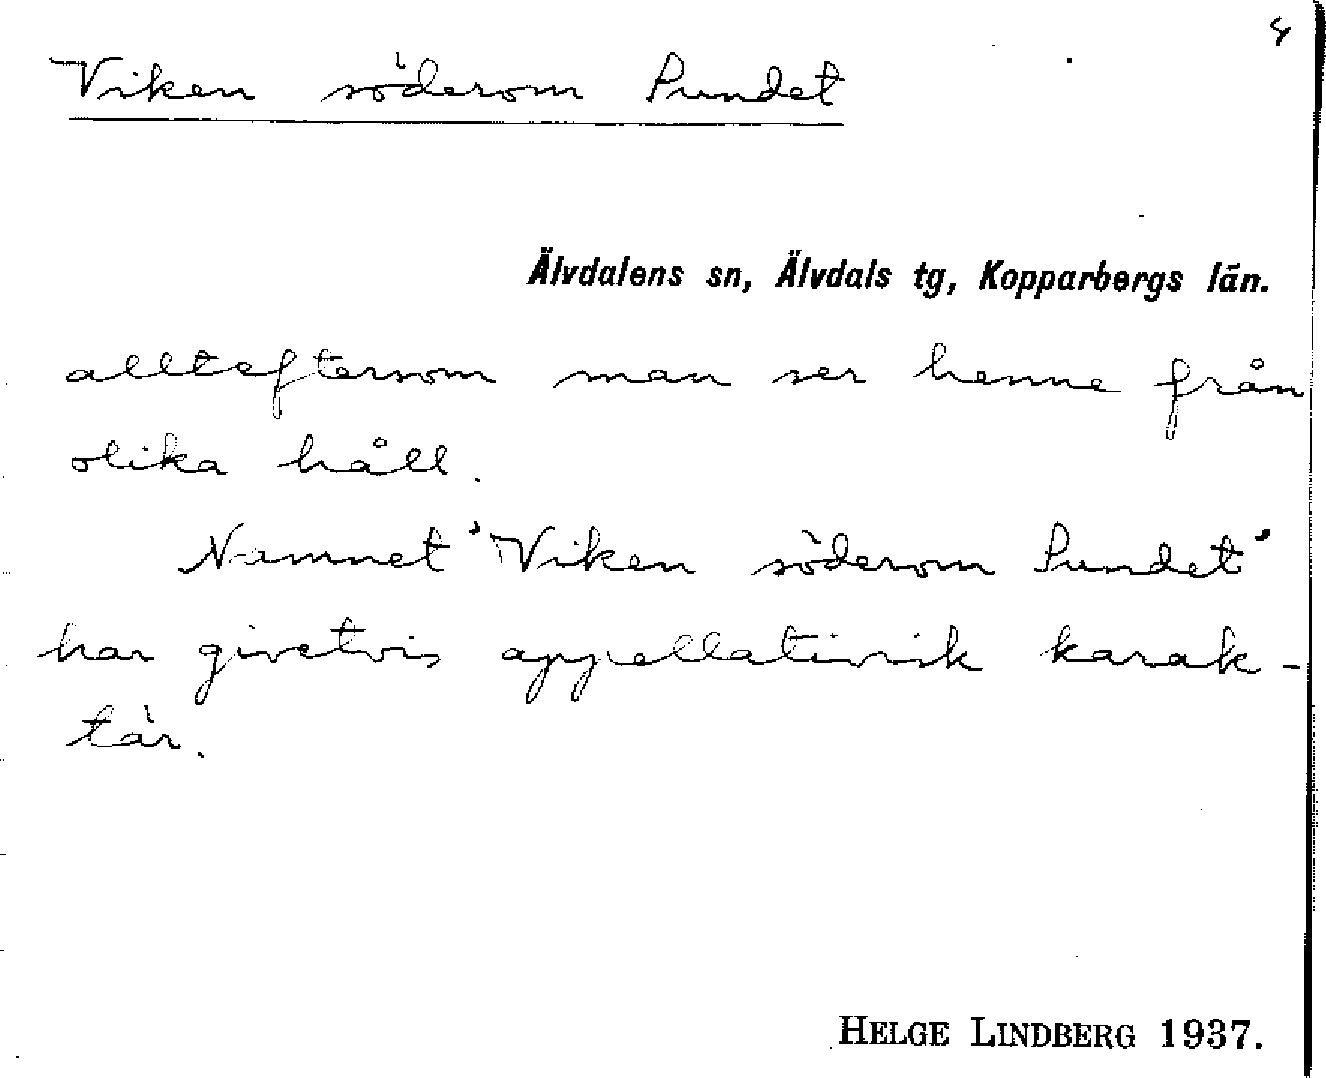 4
Viken söderom Pundet
Älvdalens sn, Älvdals tg, Kopparbergs län.
alltefterson man ser henne från
olika håll.
Namnet "Viken söderom Pundet"
har givetvis appellativisk karak-
tär.
HELGE LINDBERG 1937.